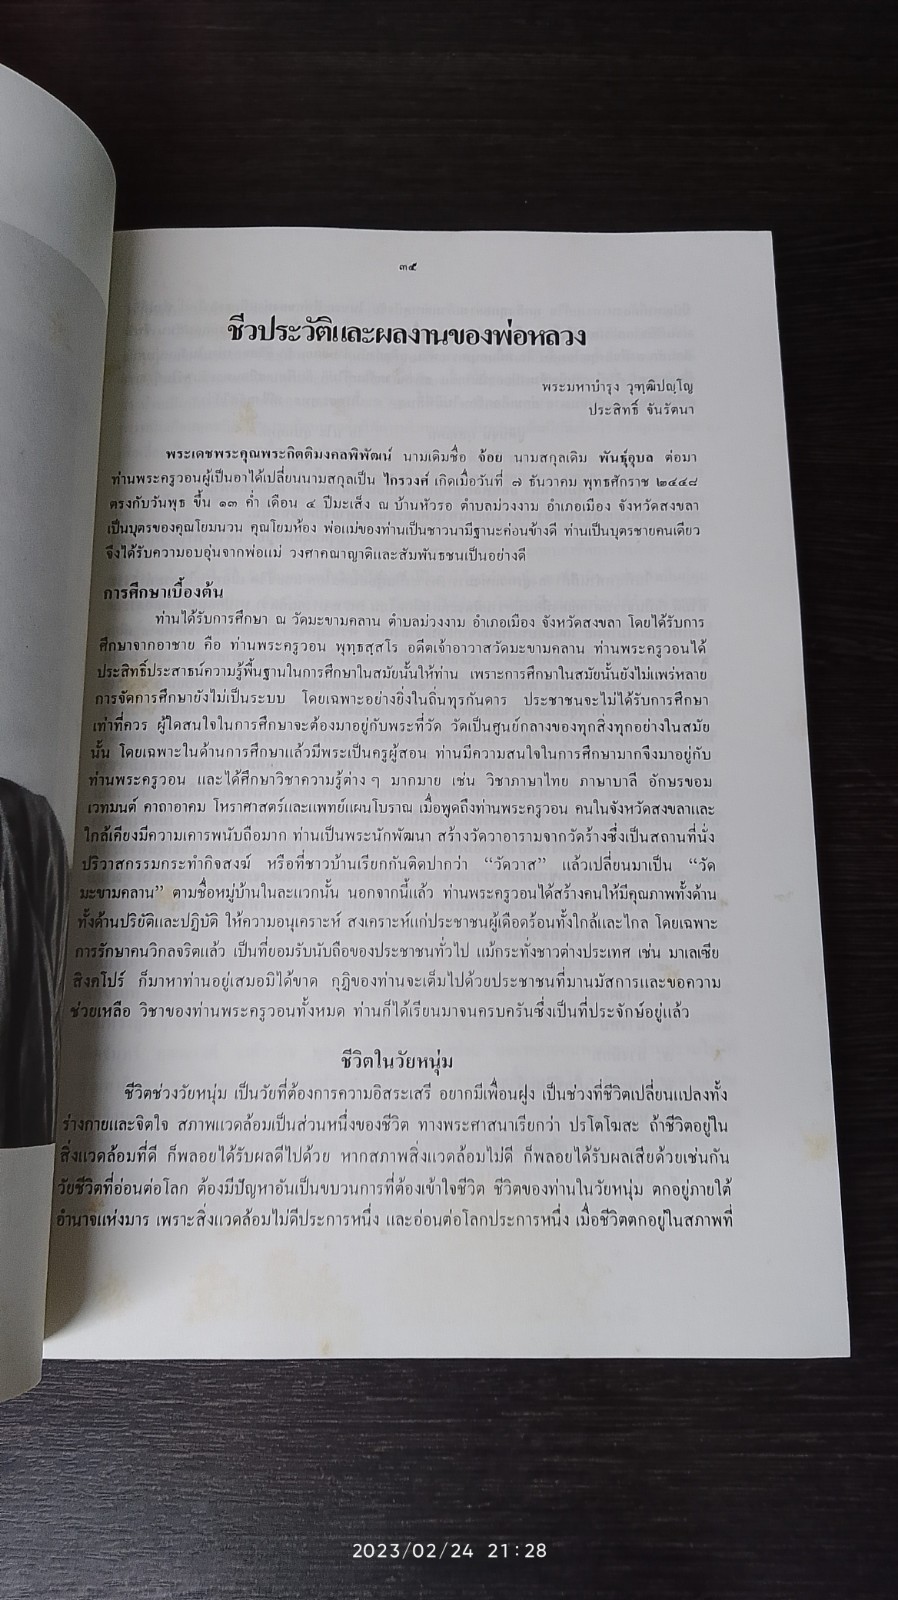 ๓๕
ชีวประวัติและผลงานของพ่อหลวง
พระมหาบำรุง วุฑฺฒิปญฺโญ
ประสิทธิ์ จันรัตนา
พระเดชพระคุณพระกิตติมงคลพิพัฒน์ นามเดิมชื่อ จ้อย นามสกุลเดิม พันธุ์อุบล ต่อมา
ท่านพระครูวอนผู้เป็นอาได้เปลี่ยนนามสกุลเป็น ไกรวงศ์ เกิดเมื่อวันที่ ๗ ธันวาคม พุทธศักราช ๒๔๔๘
ตรงกับวันพุธ ขึ้น ๑๓ ค่ำ เดือน ๔ ปีมะเส็ง ณ บ้านหัวรอ ตำบลม่วงงาม อำเภอเมือง จังหวัดสงขลา
เป็นบุตรของคุณโยมนวน คุณโยมห้อง พ่อแม่ของท่านเป็นชาวนามีฐานะค่อนข้างดี ท่านเป็นบุตรชายคนเดียว
จึงได้รับความอบอุ่นจากพ่อแม่ วงศาคณาญาติและสัมพันธชนเป็นอย่างดี
การศึกษาเบื้องต้น
ท่านได้รับการศึกษา ณ วัดมะขามคลาน ตำบลม่วงงาม อำเภอเมือง จังหวัดสงขลา โดยได้รับการ
ศึกษาจากอาชาย คือ ท่านพระครูวอน พุทฺธสฺสโร อดีตเจ้าอาวาสวัดมะขามคลาน ท่านพระครูวอนได้
ประสิทธิ์ประสาธน์ความรู้พื้นฐานในการศึกษาในสมัยนั้นให้ท่าน เพราะการศึกษาในสมัยนั้นยังไม่แพร่หลาย
การจัดการศึกษายังไม่เป็นระบบ โดยเฉพาะอย่างยิ่งในถิ่นทุรกันดาร ประชาชนจะไม่ได้รับการศึกษา
เท่าที่ควร ผู้ใดสนใจในการศึกษาจะต้องมาอยู่กับพระที่วัด วัดเป็นศูนย์กลางของทุกสิ่งทุกอย่างในสมัย
นั้น โดยเฉพาะในด้านการศึกษาแล้วมีพระเป็นครูผู้สอน ท่านมีความสนใจในการศึกษามากจึงมาอยู่กับ
ท่านพระครูวอน และได้ศึกษาวิชาความรู้ต่าง ๆ มากมาย เช่น วิชาภาษาไทย ภาษาบาลี อักษรขอม
เวทมนต์ คาถาอาคม โหราศาสตร์และแพทย์แผนโบราณ เมื่อพูดถึงท่านพระครูวอน คนในจังหวัดสงขลาและ
ใกล้เคียงมีความเคารพนับถือมาก ท่านเป็นพระนักพัฒนา สร้างวัดวาอารามจากวัดร้างซึ่งเป็นสถานที่นั่ง
ปริวาสกรรมกระทำกิจสงฆ์ หรือที่ชาวบ้านเรียกกันติดปากว่า “วัดวาส” แล้วเปลี่ยนมาเป็น “วัด
มะขามคลาน” ตามชื่อหมู่บ้านในละแวกนั้น นอกจากนี้แล้ว ท่านพระครูวอนได้สร้างคนให้มีคุณภาพทั้งด้าน
ทั้งด้านปริยัติและปฏิบัติ ให้ความอนุเคราะห์ สงเคราะห์แก่ประชาชนผู้เดือดร้อนทั้งใกล้และไกล โดยเฉพาะ
การรักษาคนวิกลจริตแล้ว เป็นที่ยอมรับนับถือของประชาชนทั่วไป แม้กระทั่งชาวต่างประเทศ เช่น มาเลเซีย
สิงคโปร์ ก็มาหาท่านอยู่เสมอมิได้ขาด กุฏิของท่านจะเต็มไปด้วยประชาชนที่มานมัสการและขอความ
ช่วยเหลือ วิชาของท่านพระครูวอนทั้งหมด ท่านก็ได้เรียนมาจนครบครันซึ่งเป็นที่ประจักษ์อยู่แล้ว
ชีวิตในวัยหนุ่ม
ชีวิตช่วงวัยหนุ่ม เป็นวัยที่ต้องการความอิสระเสรี อยากมีเพื่อนฝูง เป็นช่วงที่ชีวิตเปลี่ยนแปลงทั้ง
ร่างกายและจิตใจ สภาพแวดล้อมเป็นส่วนหนึ่งของชีวิต ทางพระศาสนาเรียกว่า ปรโตโฆสะ ถ้าชีวิตอยู่ใน
สิ่งแวดล้อมที่ดี ก็พลอยได้รับผลดีไปด้วย หากสภาพสิ่งแวดล้อมไม่ดี ก็พลอยได้รับผลเสียด้วยเช่นกัน
วัยชีวิตที่อ่อนต่อโลก ต้องมีปัญหาอันเป็นขบวนการที่ต้องเข้าใจชีวิต ชีวิตของท่านในวัยหนุ่ม ตกอยู่ภายใต้
อำนาจแห่งมาร เพราะสิ่งแวดล้อมไม่ดีประการหนึ่ง และอ่อนต่อโลกประการหนึ่ง เมื่อชีวิตตกอยู่ในสภาพที่
2023/02/24 21:28